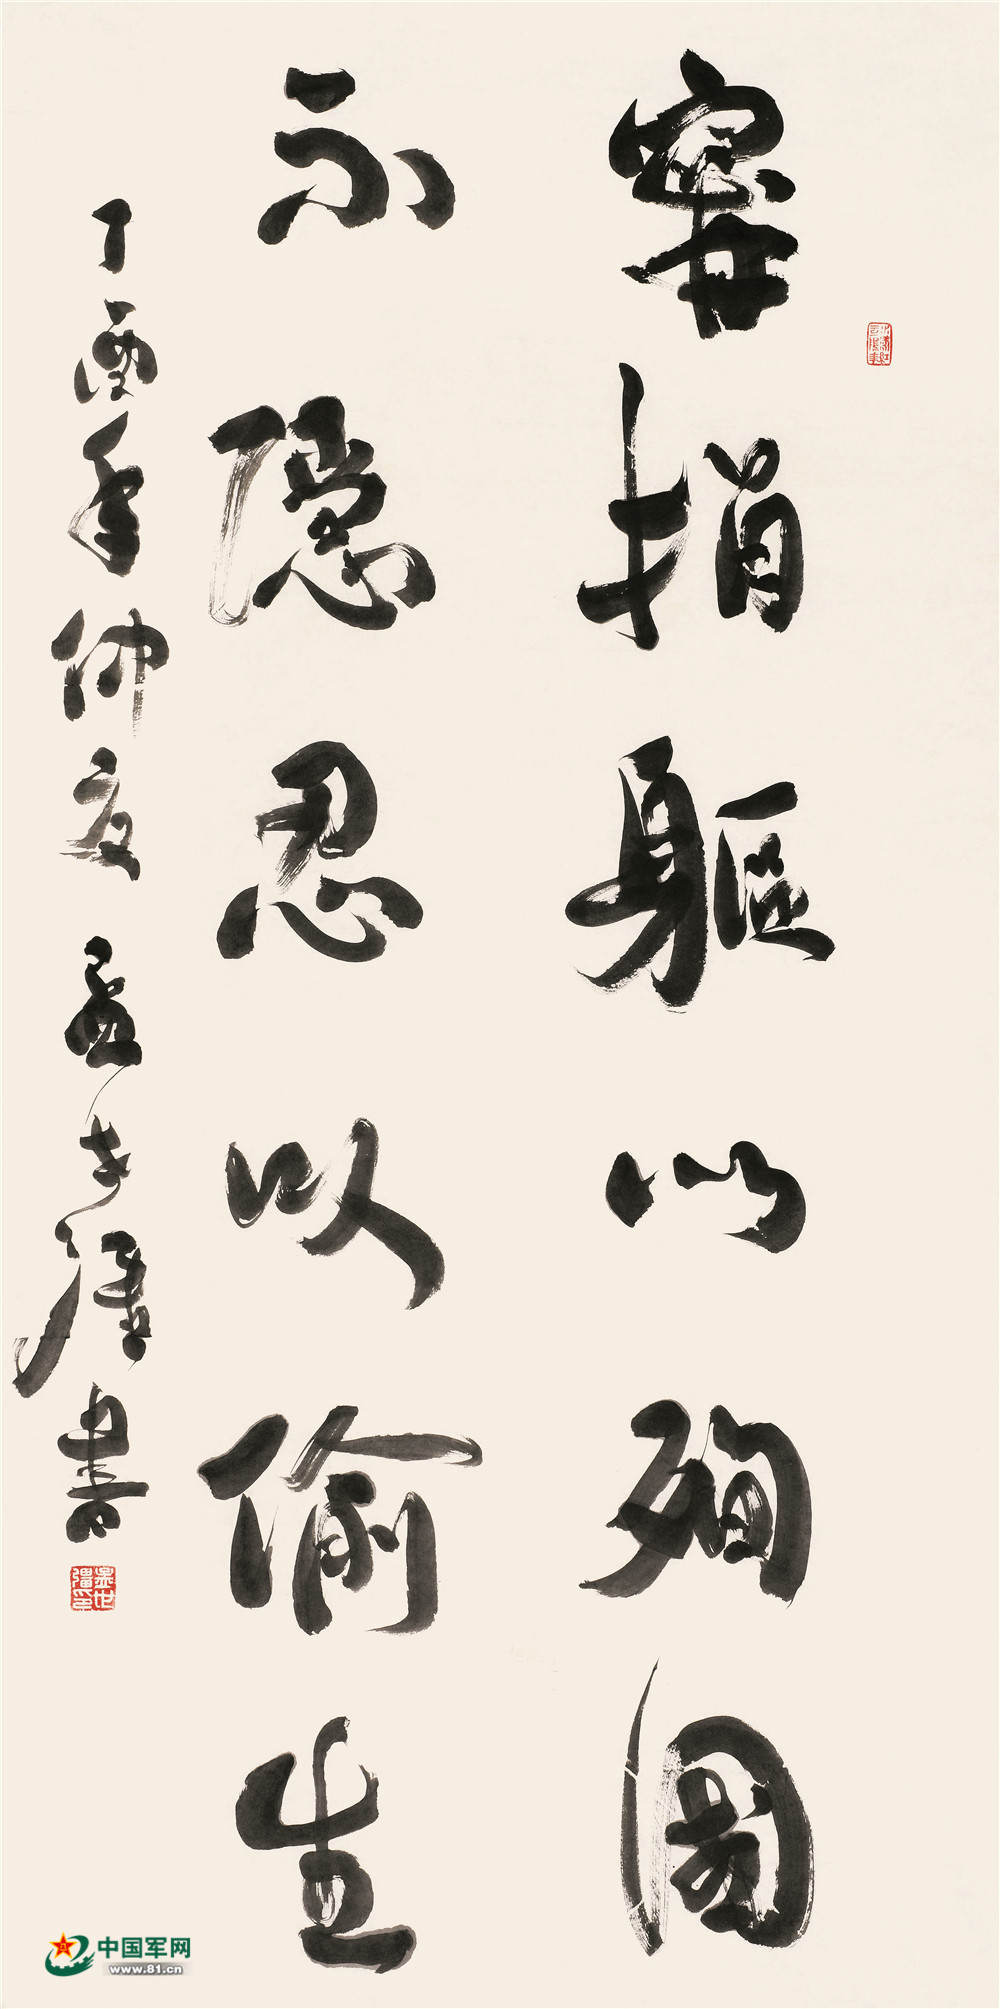 寧捐軀以殉國
不隐忍以偷生
丁酉年仲夏 孟世强書
孟世彊印
中国军网
www.81.cn